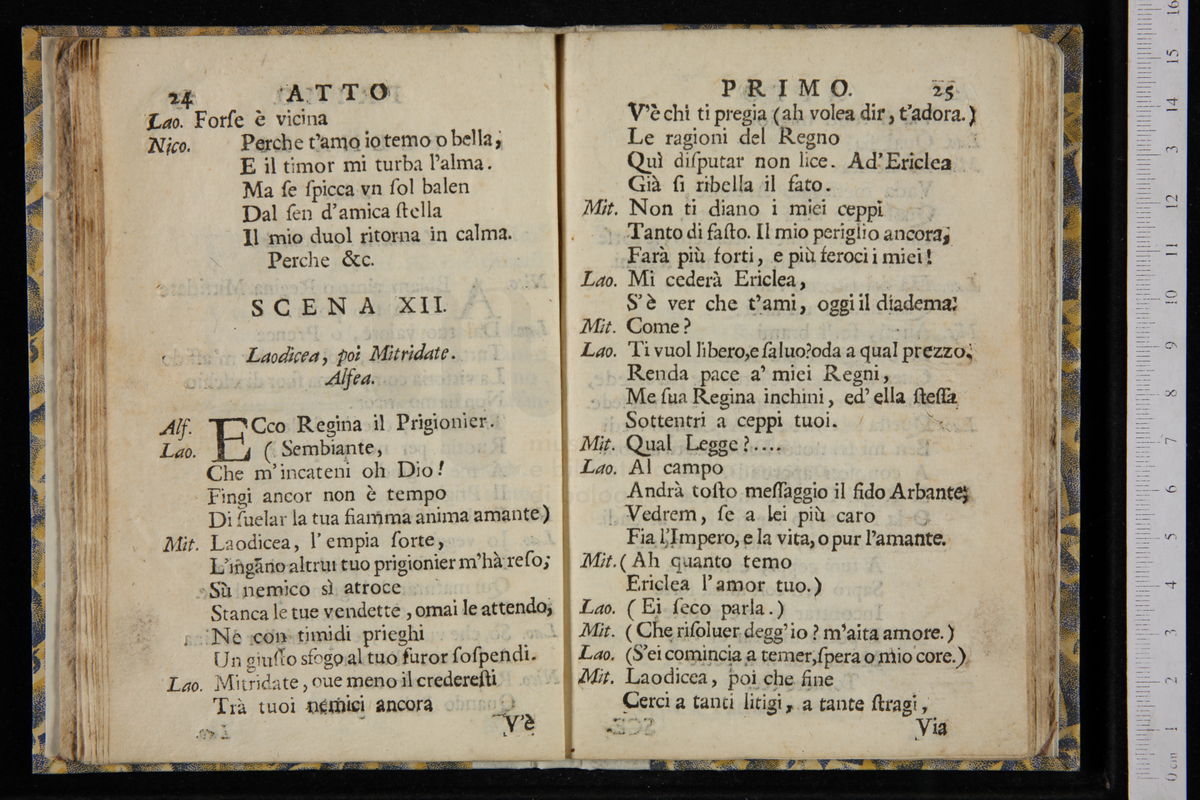 24 ATTO
Lao. Forſe è vicina
Nico. Perche t'amo io temo o bella,
E il timor mi turba l'alma.
Ma ſe ſpicca vn ſol balen
Dal ſen d'amica ſtella
Il mio duol ritorna in calma.
Perche &c.
SCENA XII.
Laodicea, poi Mitridate.
Alfea.
Alf. ECco Regina il Prigionier.
Lao. ( Sembiante,
Che m'incateni oh Dio!
Fingi ancor non è tempo
Di ſuelar la tua fiamma anima amante)
Mit. Laodicea, l'empia ſorte,
L'ingãno altrui tuo prigionier m'hà reſo;
Sù nemico sì atroce
Stanca le tue vendette, omai le attendo,
Ne con timidi prieghi
Un giuſto sfogo al tuo furor ſoſpendi.
Lao. Mitridate, oue meno il crederefti
Trà tuoi nemici ancora
V'è
PRIMO. 25
V'è chi ti pregia (ah volea dir, t'adora.)
Le ragioni del Regno
Quì diſputar non lice. Ad' Ericlea
Già ſi ribella il fato.
Mit. Non ti diano i miei ceppi
Tanto di faſto. Il mio periglio ancora,
Farà più forti, e più feroci i miei!
Lao. Mi cederà Ericlea,
S'è ver che t'ami, oggi il diadema.
Mit. Come?
Lao. Ti vuol libero, e ſaluo? oda a qual prezzo.
Renda pace a' miei Regni,
Me ſua Regina inchini, ed' ella ſteſſa
Sottentri a ceppi tuoi.
Mit. Qual Legge?....
Lao. Al campo
Andrà toſto meſſaggio il fido Arbante;
Vedrem, ſe a lei più caro
Fia l'Impero, e la vita, o pur l'amante.
Mit. ( Ah quanto temo
Ericlea l'amor tuo.)
Lao. ( Ei ſeco parla.)
Mit. ( Che riſoluer degg' io? m'aita amore.)
Lao. (S'ei comincia a temer, ſpera o mio core.)
Mit. Laodicea, poi che fine
Cerci a tanti litigi, a tante ſtragi,
Via